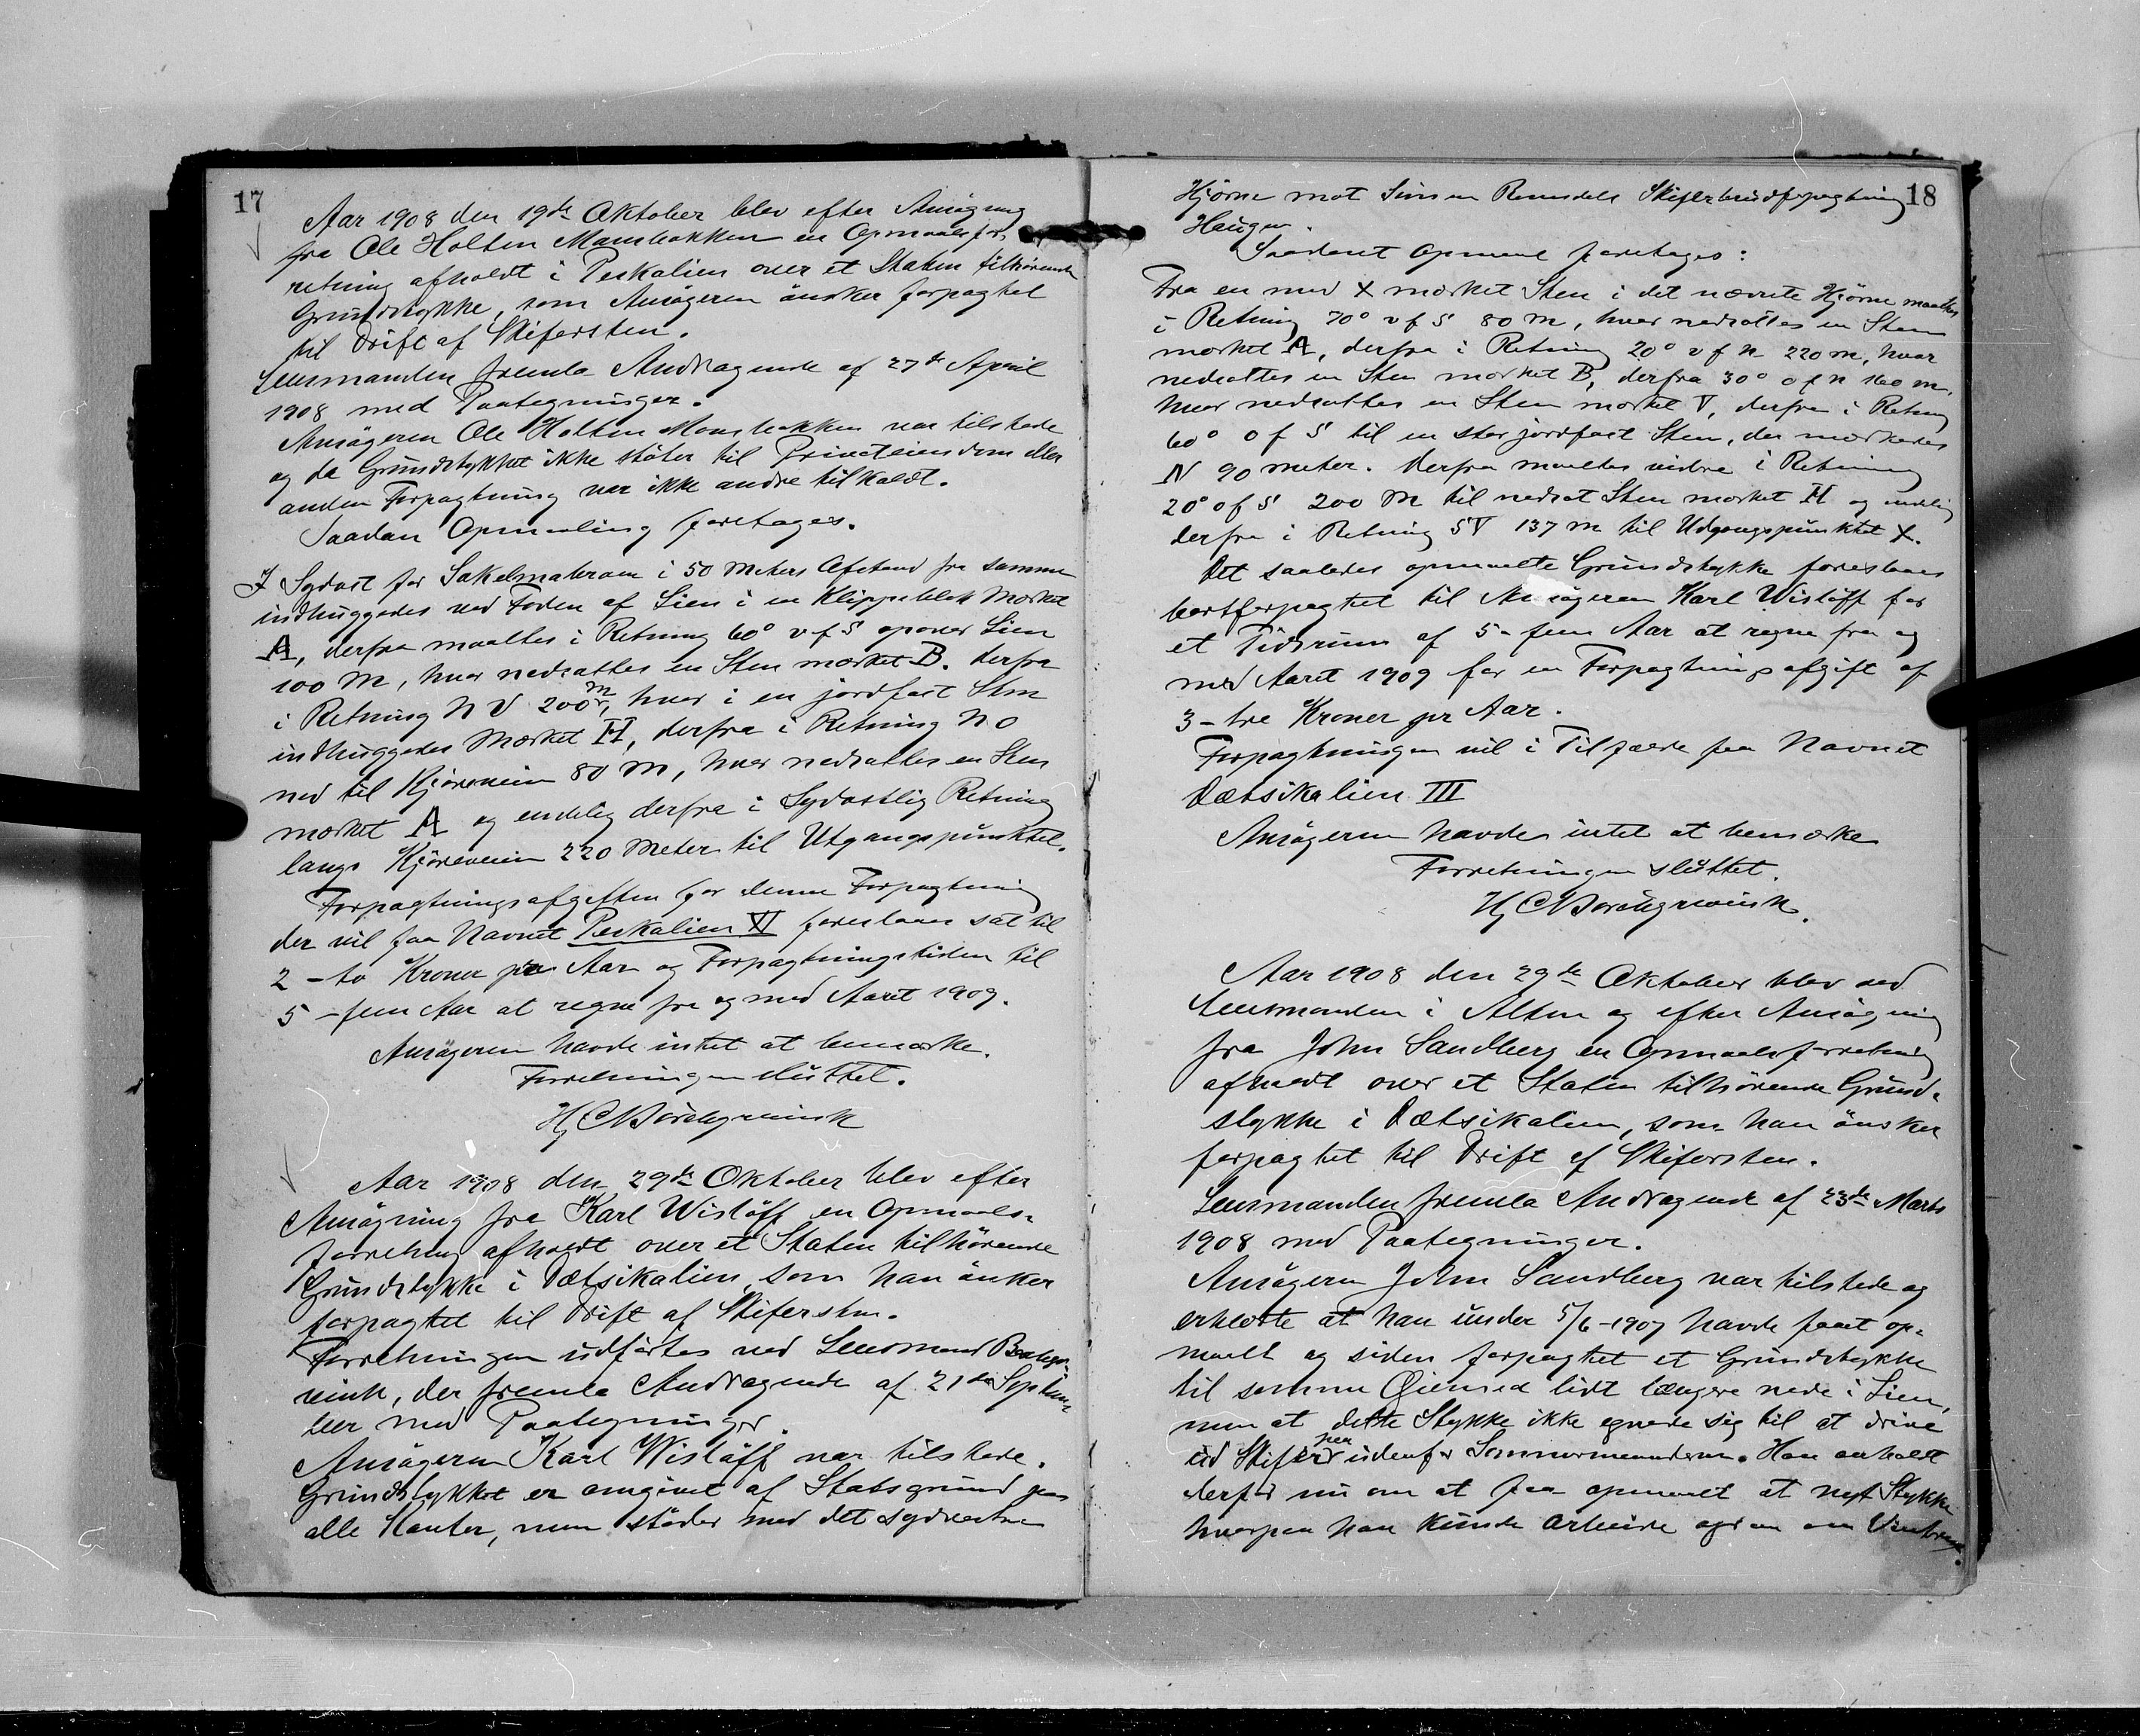 17
Aar 1908 den 19de Oktober blev efter Ansøgning
fra Ole Holten Monsbakken en Opmaalsfor,
retning afholdt i Peskalien over et Staten tilhørende
Grundstykke, som Ansøgeren ønsker forpagtet
til Drift af Skifersten.
Lensmanden fremla Andragende af 27de April
1908 med Paategninger.
Ansøgeren Ole Holten Monsbakken var tilstede
og da Grundstykket ikke støter til Privateiendom eller
anden Forpagtning var ikke andre tilkaldt.
Saadan Opmaaling foretages.
I Sydost for Sakelmateraen i 50 Meters Afstand fra samme
indhuggedes ved Foden af Lien i en Klippeblok Mærket
A, derfra maaltes i Retning 60° v f S opover Lien
100 M, hvor nedsattes en Sten mærket B. derfra
i Retning N V 200 m, hvor i en jordfast Sten
indhuggedes Mærket H, derfra i Retning N O
ned til Kjøreveien 80 M, hvor nedsattes en Sten
mærket A og endelig derfra i Sydostlig Retning
langs Kjøreveien 220 Meter til Utgangspunktet.
Forpagtningsafgiften for denne Forpagtning
der vil faa Navnet Peskalien XI foreslaaes sat til
2 - to Kroner pr Aar og Forpagtningstiden til
5 - fem Aar at regne fra og med Aaret 1909.
Ansøgeren havde intet at bemærke.
Forretningen sluttet.
Hj C Borchgrevink
Aar 1908 den 29de Oktober blev efter
Ansøgning fra Karl Wisløff en Opmaals-
forretning afholdt over et Staten tilhørende
Grundstykke i Dætsikalien, som han ønker
forpagtet til Drift af Skifersten.
Forretningen udførtes ved Lensmand Borchg-
revink, der fremla Andragende af 21de Septem
ber med Paategninger.
Ansøgeren Karl Wisløff var tilstede.
Grundstykket er omgivet af Statsgrund paa
alle Kanter, men støder med det sydvestre
18
Hjørne mot Simen Romsdals Skiferbrudforpagtning
Haugen.
Saadant Opmaal foretages:
Fra en med X mærket Sten i det nævnte Hjørne maaltes
i Retning 70° v f S 80 M, hvor nedsattes en Sten
mærket A, derfra i Retning 20° v f N 220 m, hvor
nedsattes en Sten mærket B, derfra 30° o f N 160 m,
hvor nedsattes en Sten mærket V, derfra i Retning
60° o f S til en stor jordfast Sten, der mærkedes
N 90 meter. Derfra maaltes videre i Retning
20° o f S 200 M til nedsat Sten mærket H og endelig
derfra i Retning SV 137 M til Udgangspunktet X.
Det saaledes opmaalte Grundstykke foreslaaes
bortforpagtet til Ansøgeren Karl Wisløff for
et Tidsrum af 5 - fem Aar at regne fra og
med Aaret 1909 for en Forpagtningsafgift af
3 - tre Kroner pr Aar.
Forpagtningen vil i Tilfælde faa Navnet
Dætsikalien III
Ansøgeren havde intet at bemærke
Forretningen sluttet.
Hj C Borchgrevink.
Aar 1908 den 29de Oktober blev ved
Lensmanden i Alten og efter Ansøgning
fra John Sandberg en Opmaalsforretning
afholdt over et Staten tilhørende Grund-
stykke i Dætsikalien, som han ønsker
forpagtet til Drift af Skifersten.
Lensmanden fremla Andragende af 23de Marts
1908 med Paategninger.
Ansøgeren John Sandberg var tilstede og
erklærte at han under 5/6-1907 havde faaet op-
maalt og siden forpagtet et Grundstykke
til samme Øiemed lidt længere nede i Lien,
men at dette Stykke ikke egnede sig til at drive
ud Skifer paa udenfor Sommermaanderne. Han anholdt
derfor nu om at faa opmaalt et nyt Stykke
hvorpaa han kunde arbeide ogsaa om Vinteren.